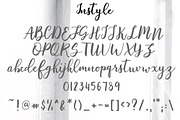 Instyle
ABCDEFGHIJKLM
NOPQRSTUVWXYZ
abcdefghijklmnopqrstuvwxyz
0123456789